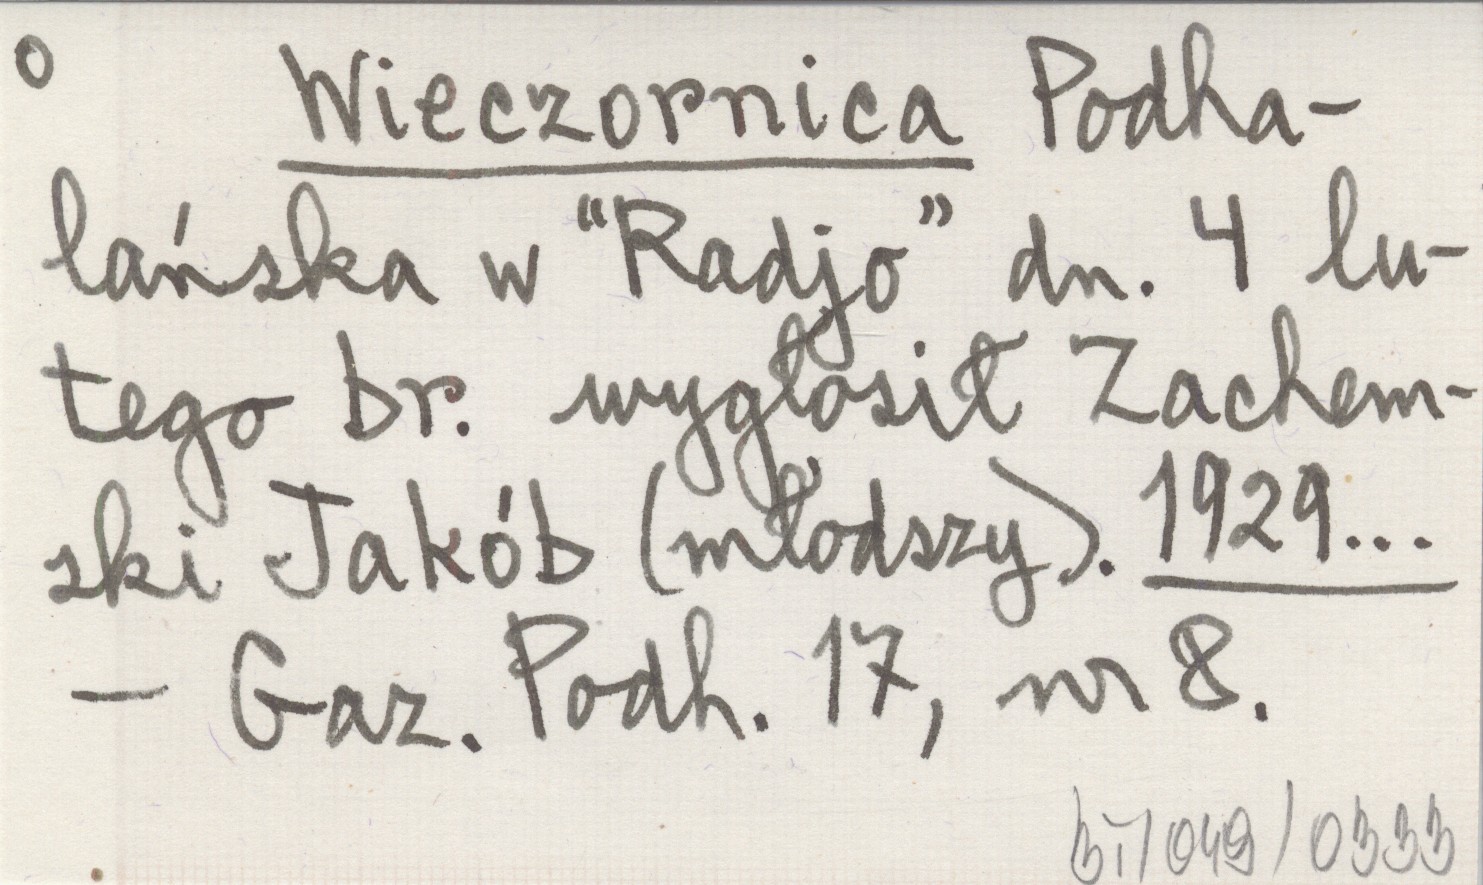 o Wieczornica Podha-
lańska w "Radjo" dn. 4 lu-
tego br. wygłosił Zachem-
ski Jakób (młodszy). 1929...
— Gaz. Podh. 17, nr 8.
bi/049/0333